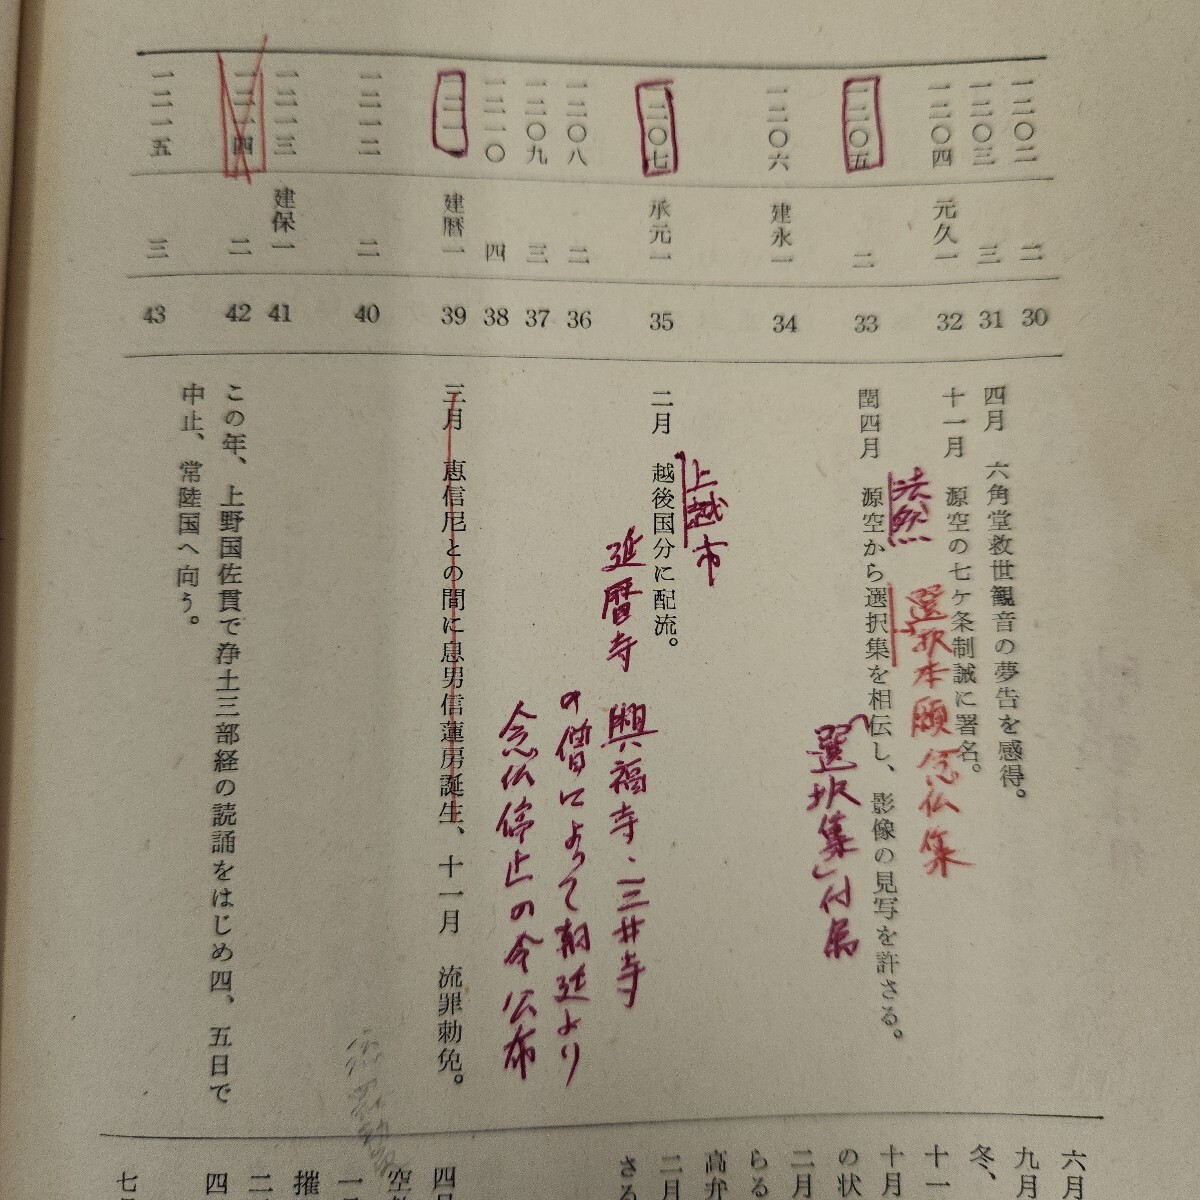 一二〇二
二
30
一二〇三
三
31
四月 六角堂救世観音の夢告を感得。
一二〇四
元久一
32
十一月 源空の七ケ条制誡に署名。
選択本願念仏集
法然
一二〇五
二
33
閏四月 源空から選択集を相伝し、影像の見写を許さる。
選択集」付属
一二〇六
建永一
34
上越市
一二〇七
承元一
35
二月 越後国分に配流。
延暦寺 興福寺・三井寺
の僧によって朝廷より
念仏停止の令公布
一二〇八
二
36
一二〇九
三
37
一二一〇
四
38
一二一一
建暦一
39
三月 恵信尼との間に息男信蓮房誕生、十一月 流罪勅免。
一二一二
二
40
一二一三
建保一
41
一二一四
二
42
この年、上野国佐貫で浄土三部経の読誦をはじめ四、五日で
中止、常陸国へ向う。
一二一五
三
43
六月
九月
冬、
十一
十月
の状
二月
らる
高弁
二月
さる
四月
空
一
摂
二
四
七